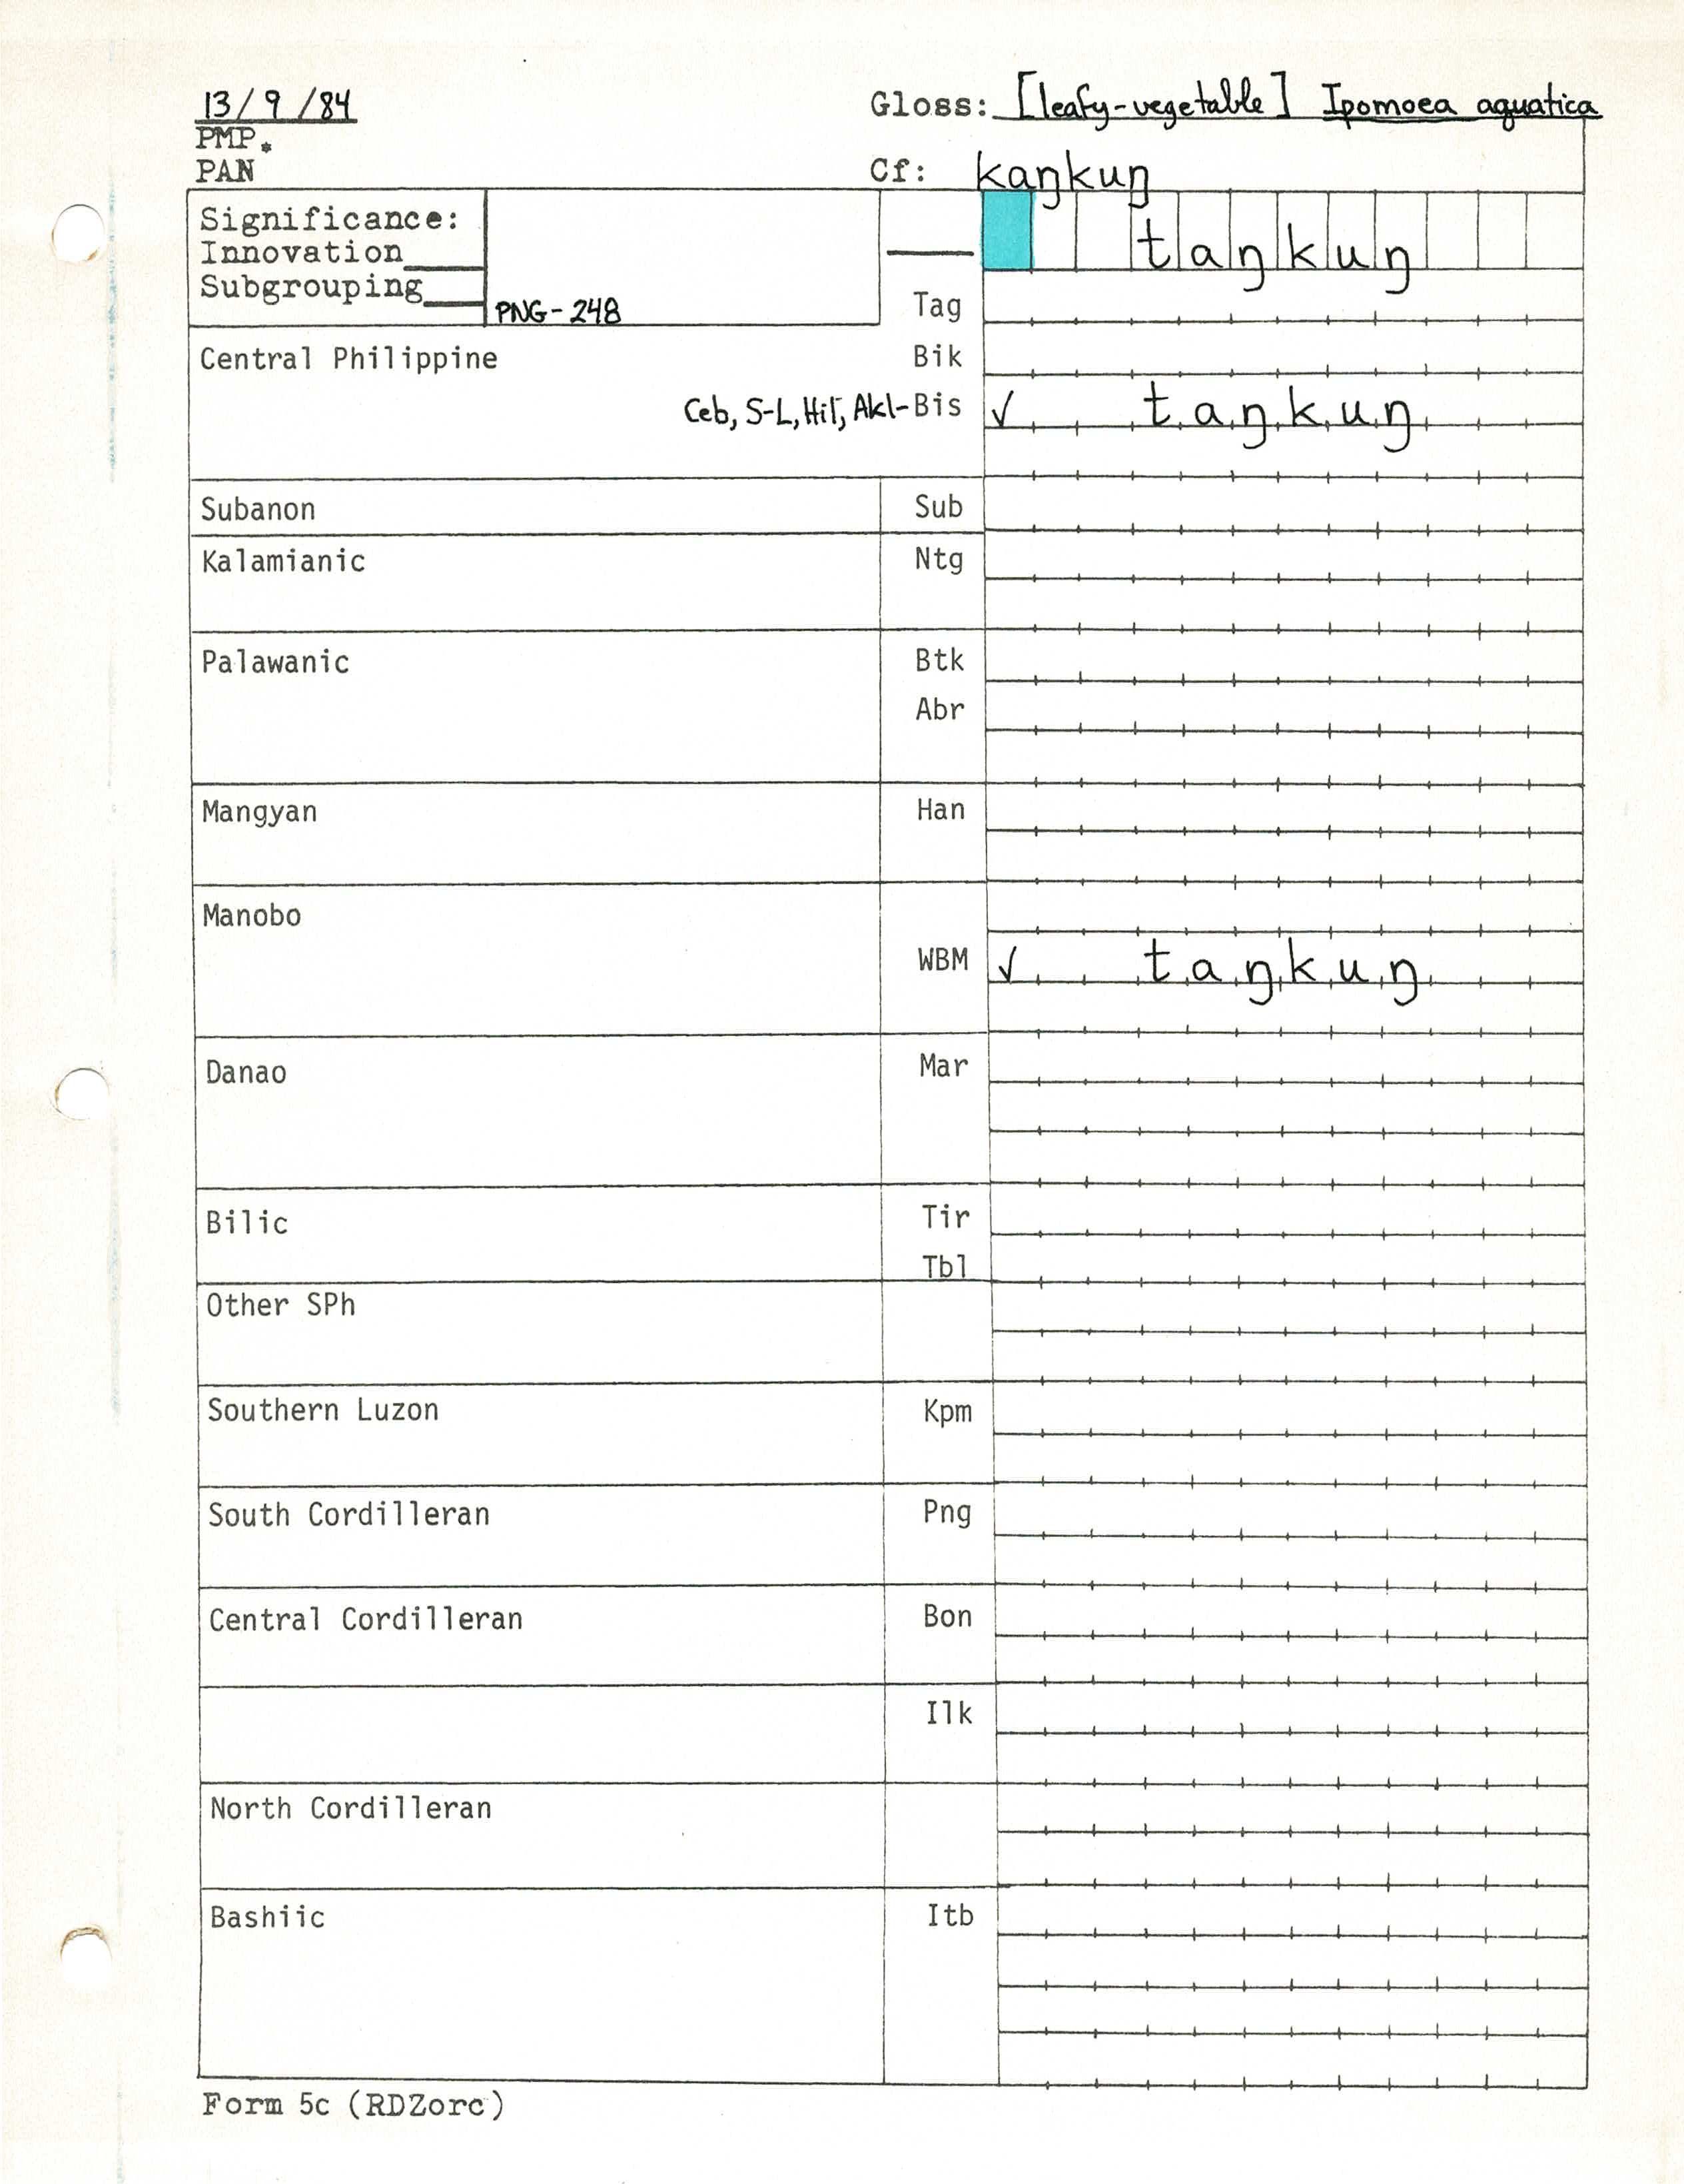 13/9/84
Gloss: [leafy-vegetable] Ipomoea aquatica
PMP.
PAN
Cf: kaŋkuŋ
Significance:
Innovation
Subgrouping
PNG-248
taŋkuŋ
Tag
Central Philippine Bik
Ceb, S-L, Hil, Akl-Bis ✓ taŋkuŋ
Subanon Sub
Kalamianic Ntg
Palawanic Btk
Abr
Mangyan Han
Manobo
WBM ✓ taŋkuŋ
Danao Mar
Bilic Tir
Tbl
Other SPh
Southern Luzon Kpm
South Cordilleran Png
Central Cordilleran Bon
Ilk
North Cordilleran
Bashiic Itb
Form 5c (RDZorc)